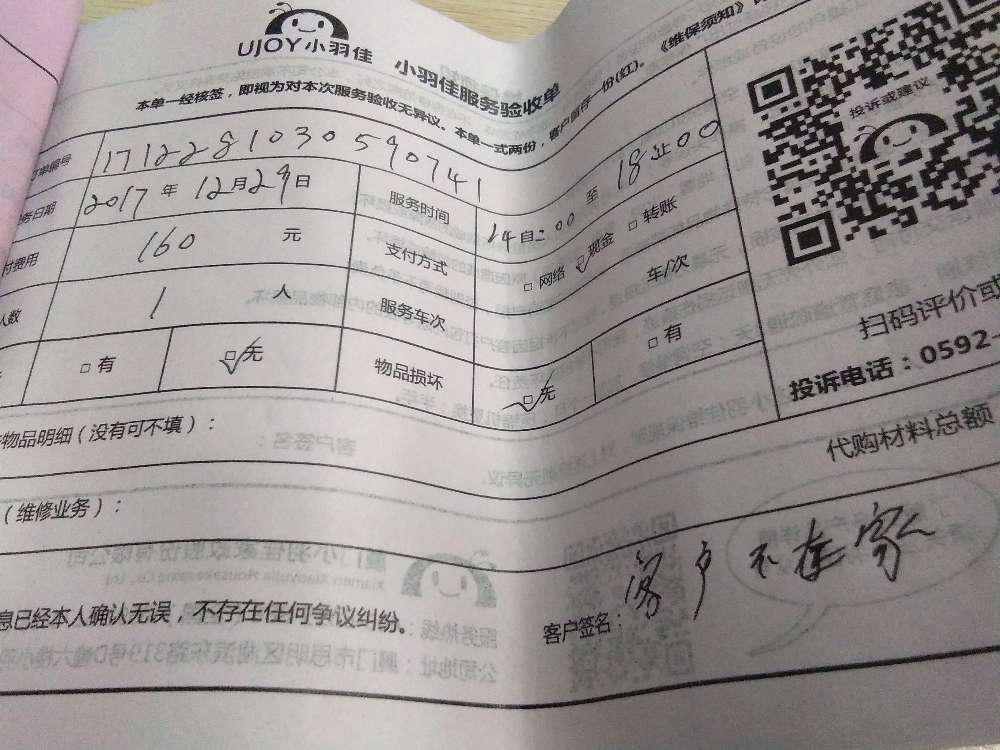 UJOY小羽佳 小羽佳服务验收单
《维保须知》
本单一经核签，即视为对本次服务验收无异议。本单一式两份，客户留存一份(红)。
单编号 171228103059074​1
日期 2017年12月29日 服务时间 14自:00至18止00
付费用 160 元 支付方式 □网络 ☑现金 □转账
人数 1 人 服务车次 车/次
□有 ☑无 物品损坏 ☑无 □有
物品明细（没有可不填）：
代购材料总额
（维修业务）：
息已经本人确认无误，不存在任何争议纠纷。
客户签名：客户不在家
投诉或建议
扫码评价或
投诉电话：0592-